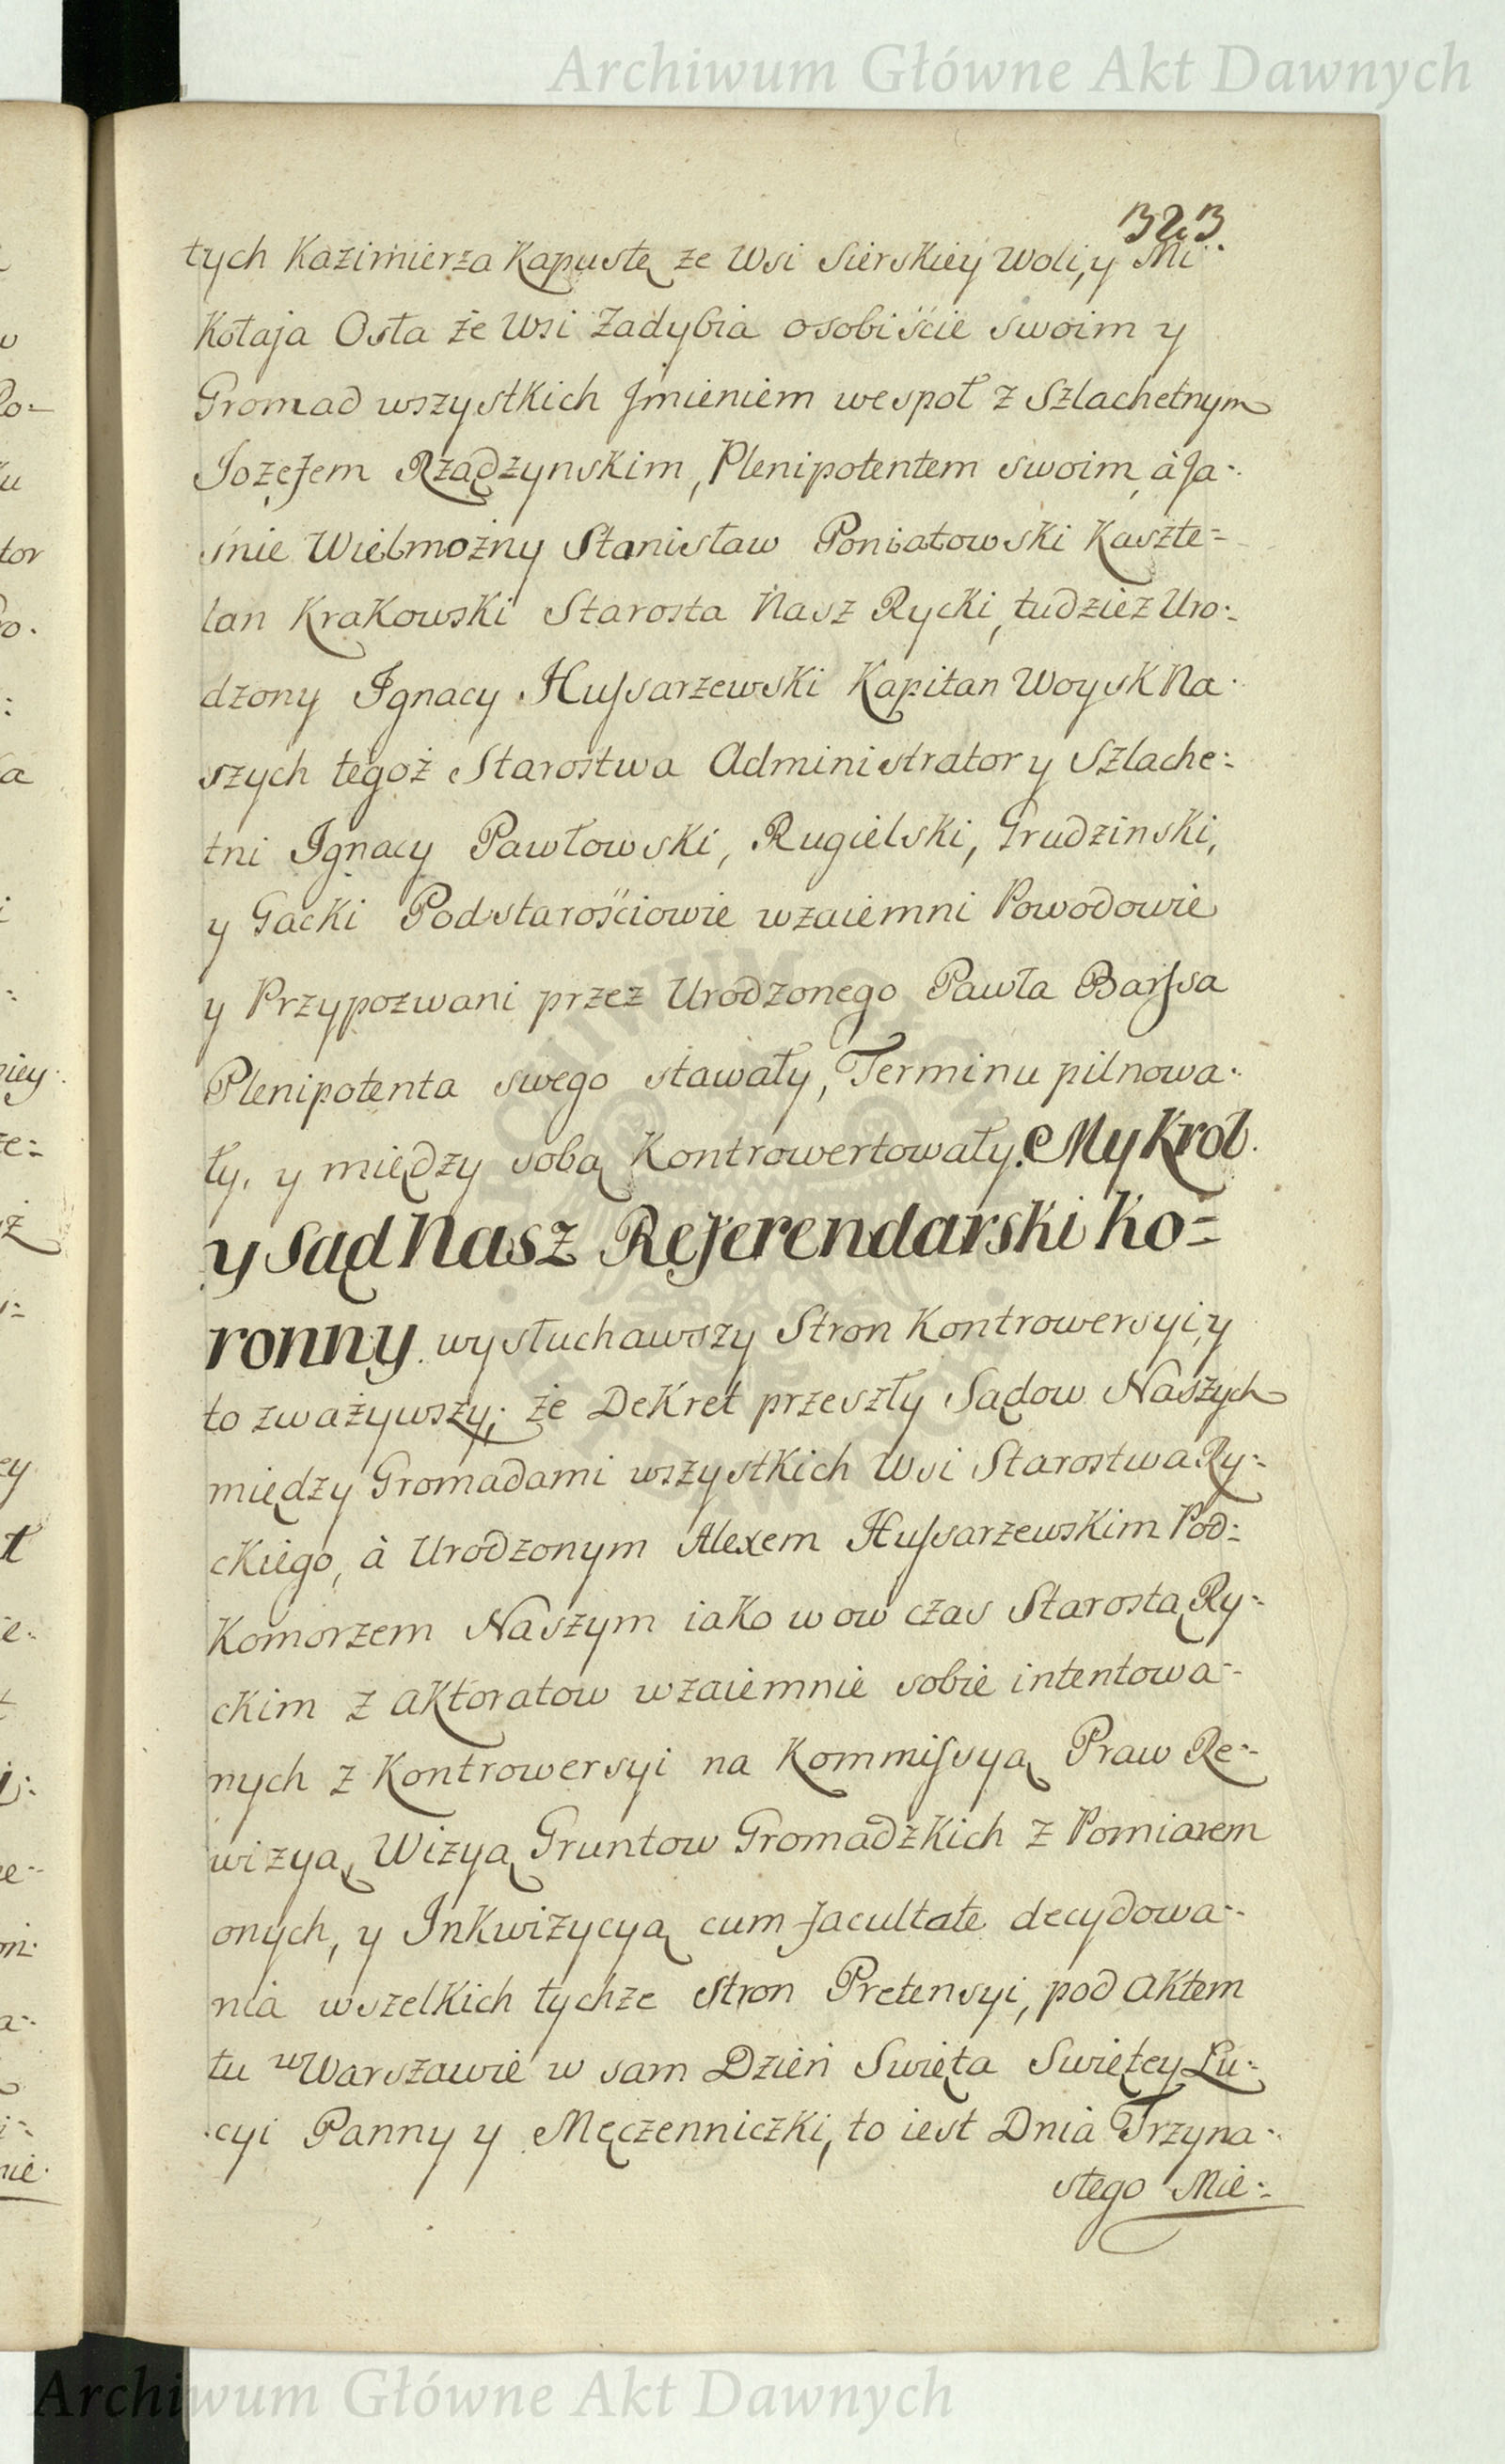 Archiwum Główne Akt Dawnych
323
tych Kazimierza Kapustę ze Wsi Sierskiey Woli, y Mi
Kołaja Osła że Wsi Zadybia osobiście swoim y
Gromad wszystkich Jmieniem wespoł z Szlachetnym
Jozefem Rządzynskim, Plenipotentem swoim, à Ja-
śnie Wielmożny Stanisław Poniatowski Kaszte=
lan Krakowski Starosta Nasz Rycki, tudzież Uro:
dzony Ignacy Hussarzewski Kapitan Woysk Na:
szych tegoż Starostwa Administrator y Szlache:
tni Ignacy Pawłowski, Rugielski, Grudzinski,
y Gacki Podstarościowie wzaiemni Powodowie
y Przypozwani przez Urodzonego Pawła Barssa
Plenipotenta swego stawały, Terminu pilnowa-
ły, y między sobą Kontrowertowały. My Krol
y Sąd Nasz Referendarski Ko=
ronny wysłuchawszy Stron Kontrowersyi, y
to zważywszy; że Dekret przeszły Sądow Naszych
między Gromadami wszystkich Wsi Starostwa Ry:
ckiego, à Urodzonym Alexem Hussarzewskim Pod:
Komorzem Naszym iako w ow czas Starostą Ry:
ckim z aktoratow wzaiemnie sobie intentowa-
nych z Kontrowersyi na Kommissyą Praw Re-
wizyą, Wizyą Gruntow Gromadzkich z Pomiarem
onych, y Inkwizycyą cum facultate decydowa-
nia wszelkich tychże Stron Pretensyi, pod aktem
tu w Warszawie w sam Dzień Święta Swiętey Lu:
cyi Panny y Męczenniczki, to iest Dnia Trzyna-
stego Mie:
Archiwum Główne Akt Dawnych